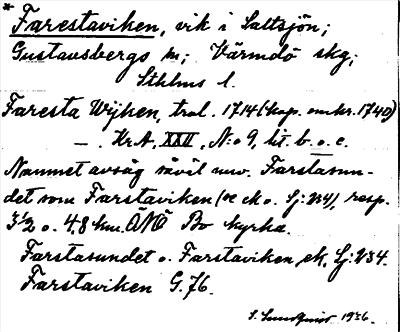 * Farestaviken, vik i Saltsjön;
Gustavsbergs sn; Värmdö skg;
Sthlms l.
Faresta Wijken, trol. 1714 (kop. omkr. 1740)
— . Kr.A, XXVI, N:o 9, lit. b. o. c.
Namnet avsåg såväl nuv. Farstasun-
det som Farstaviken (se ek o. Sj: 234), resp.
3½ o. 4,8 km. ÖNÖ Bo kyrka.
Farstasundet o. Farstaviken, ek, Sj: 234.
Farstaviken G. 76.
S. Sundquist 1936.